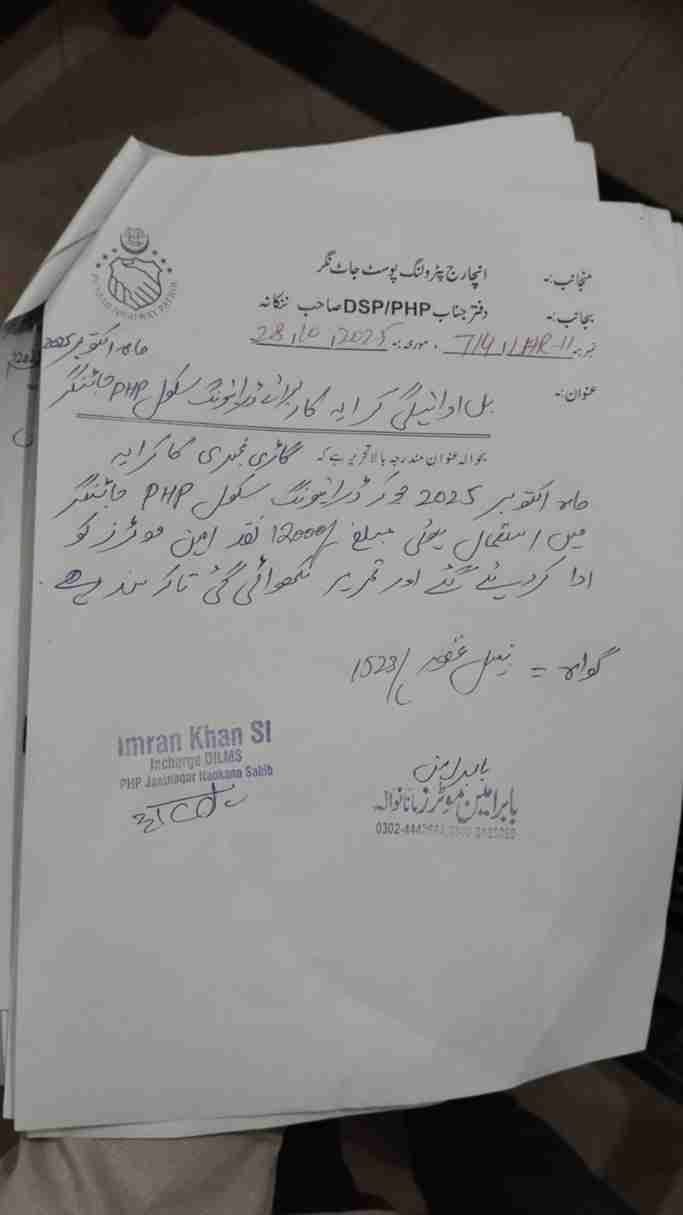 PUNJAB HIGHWAY PATROL
منجانب:- انچارج پٹرولنگ پوسٹ جاٹ نگر
بجانب:- دفتر جناب DSP/PHP صاحب ننکانہ
نمبر:- 714/HR-11 ، مورخہ:- 28/10/2025
ماہ اکتوبر 2025
عنوان:- بل ادائیگی کرایہ کار برائے ڈرائیونگ سکول PHP جاٹنگر
بحوالہ عنوان مندرجہ بالا تحریر ہے کہ گاڑی نمبری کا کرایہ
ماہ اکتوبر 2025 جو کہ ڈرائیونگ سکول PHP جاٹنگر
میں استعمال ہوئی مبلغ 12000/ نقد امین موٹرز کو
ادا کر دیئے گئے اور تحریر لکھوائی گئی تاکہ سند رہے۔
گواہ = نبیل غفور 1523/
Imran Khan SI
Incharge DILMS
PHP Janinagar Nankana Sahib
بابر امین
بابر امین موٹرز مانانوالہ